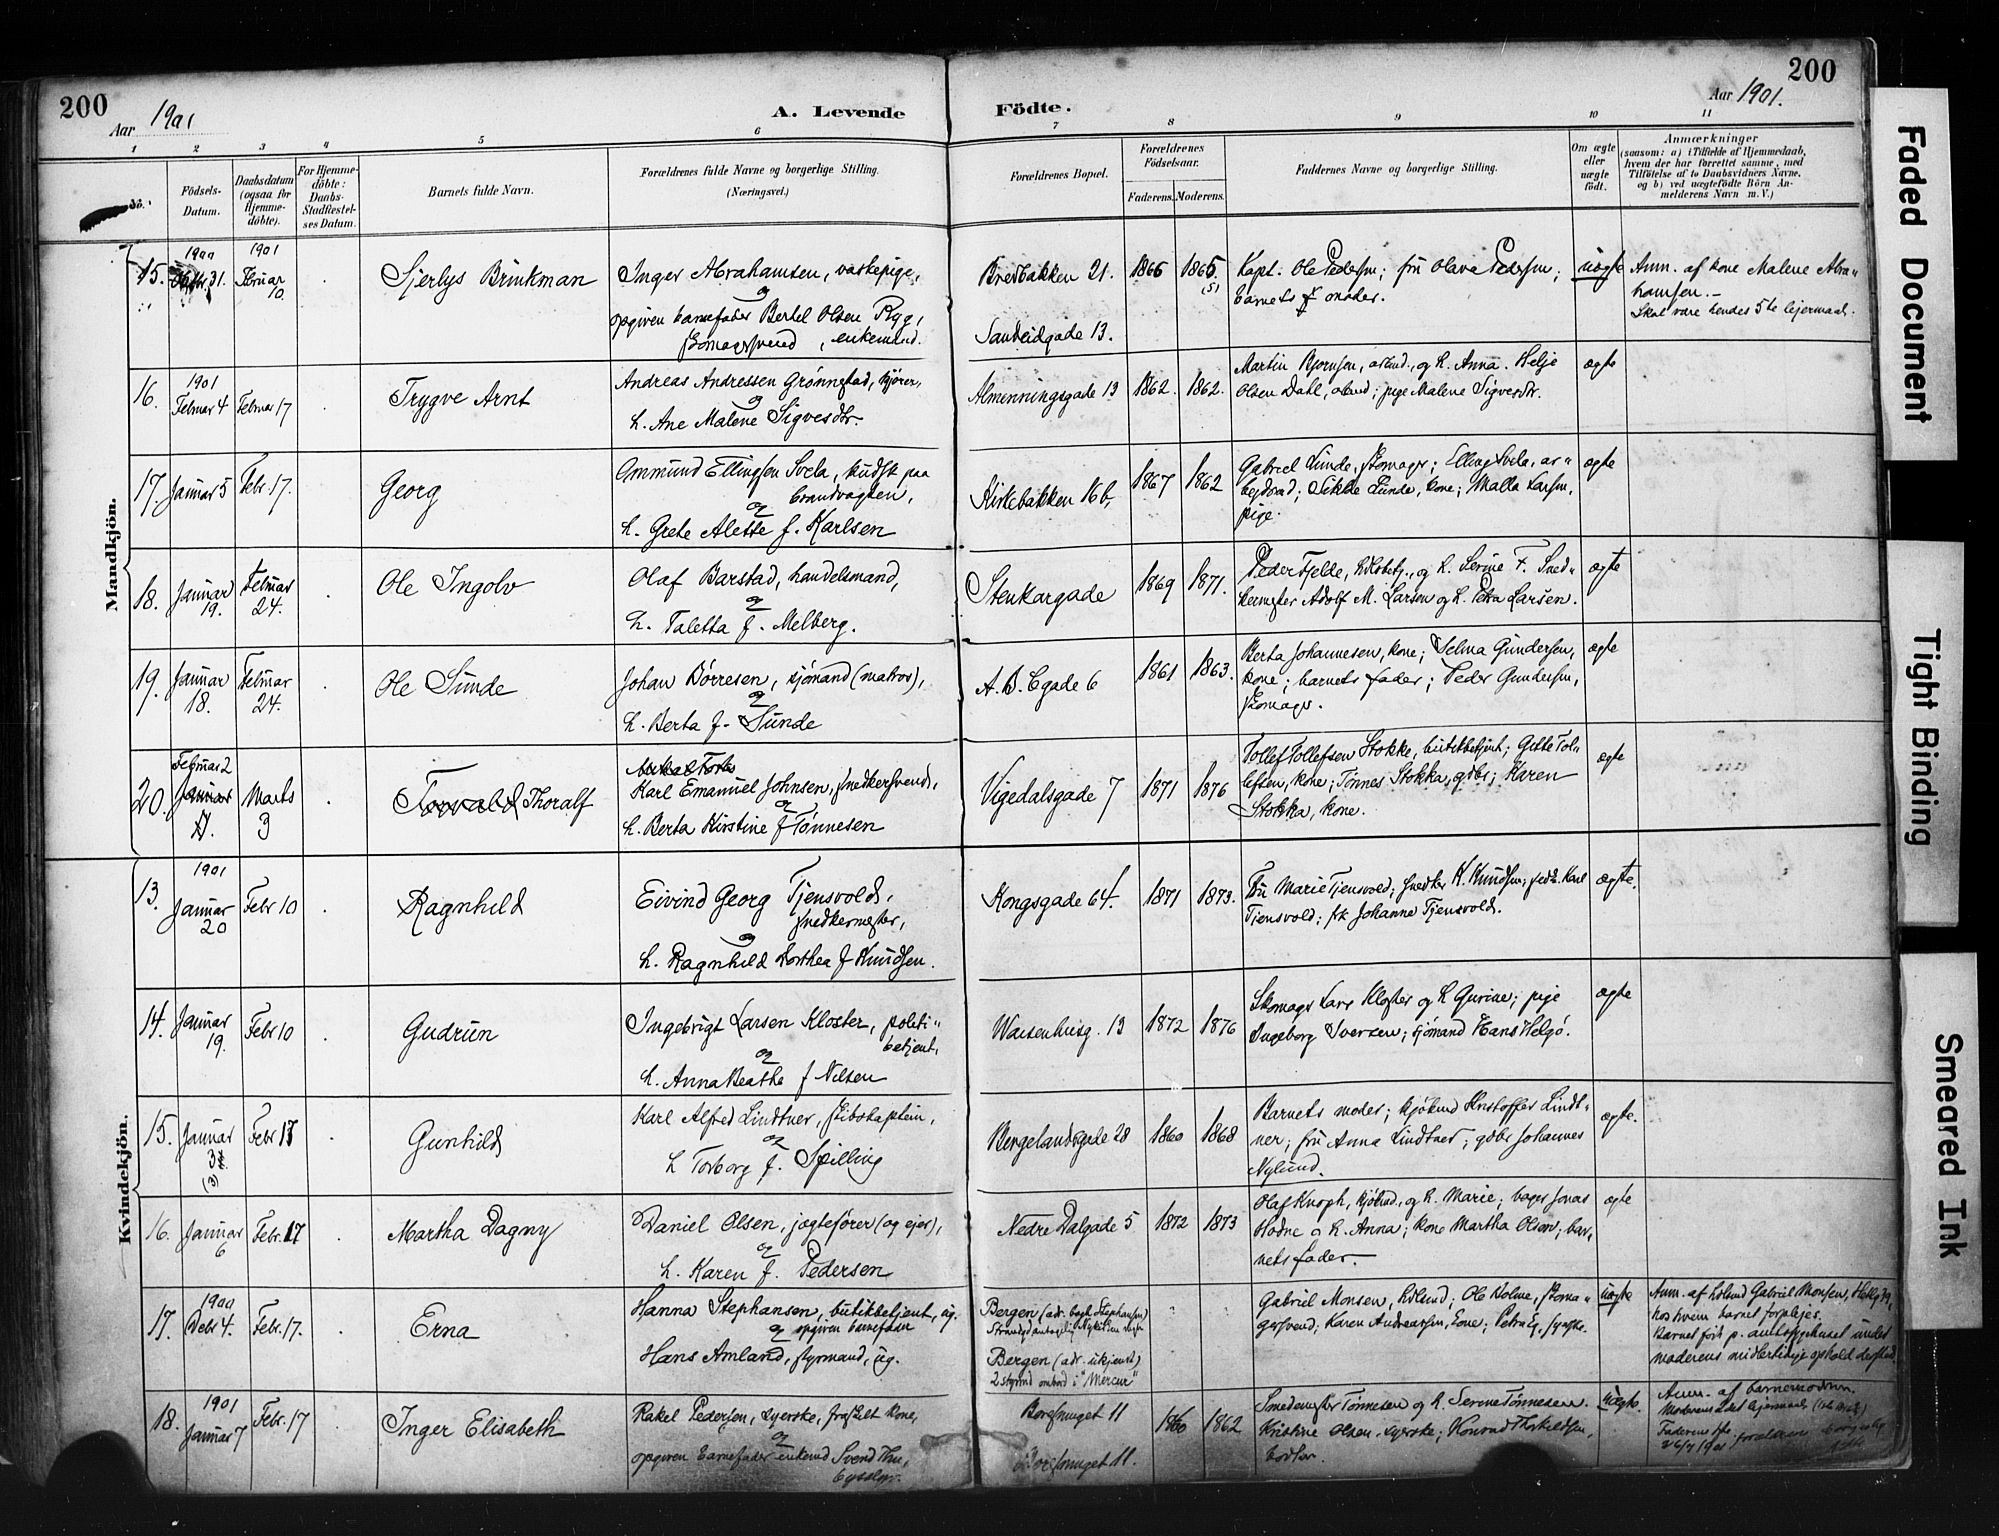 200
Aar 1901
A. Levende
Födte.
Aar 1901.
200
1 2 3 4 5 6 7 8 9 10 11
No.
Födsels-
Datum.
Daabsdatum
(ogsaa for
Hjemme-
döbte).
For Hjemme-
döbte:
Daabs-
Stadfæstel-
ses Datum.
Barnets fulde Navn.
Forældrenes fulde Navne og borgerlige Stilling.
(Næringsvei.)
Forældrenes Bopæl.
Forældrenes
Födselsaar.
Faderens. Moderens.
Faddernes Navne og borgerlige Stilling.
Om ægte
eller
uægte
födt.
Anmærkninger
(saasom: a) i Tilfælde af Hjemmedaab,
hvem der har forrettet samme, med
Tilföielse af to Daabsvidners Navne,
og b) ved uægtefödte Börn An-
melderens Navn m. V.)
Mandkjön.
15.
1900
31.
1901
Februar
10.
Sjerlys Brinkman
Inger Abrahamsen, vaskepige,
og
opgiven barnefader Bertel Olsen Ryg,
skomagersvend, enkemand.
Bredbakken 21.
Sandeidgade 13.
1866
1865
(5)
Kapt. Ole Pedersen; fru Olava Pedersen;
barnets moder.
uægte
Anm. af kone Malene Abra-
hamsen.
Skal være hendes 5te lejermaal.
16.
1901
Februar 4
Februar 17
Trygve Arnt
Andreas Andressen Grønnestad, kjører,
og
h. Ane Malene Sigvesdtr.
Almenningsgade 13
1862.
1862.
Martin Bjørnsen, arbmd., og h. Anna. Helje
Olsen Dahl, arbmd; pige Malene Sigvesdtr.
ægte
17.
Januar 5
Febr. 17.
Georg
Gunmund Ellingsen Svela, kudsk paa
brandvagten,
og
h. Grete Alette f. Karlsen
Kirkebakken 16b,
1867
1862
Gabriel Lunde, skomager; Elling Svela, ar-
bejdsmd; Sikke Lunde, kone; Malla Larsen,
pige.
ægte
18.
Januar
19.
Februar
24.
Ole Ingolv
Olaf Barstad, handelsmand,
og
h. Taletta f. Melberg.
Stenkargade
1869
1871.
Peder Fjelde, og h. Serine F. Sned-
kermester Adolf M. Larsen og h. Petra Larsen.
ægte
19.
Januar
18.
Februar
24.
Ole Sunde
Johan Børresen, sjömand (matros),
og
h. Berta f. Sunde
A. B. Cgade 6
1861
1863.
Berta Johannesen, kone; Selma Gundersen,
kone; barnets fader; Peder Gundersen,
skomager.
ægte
20.
Februar 2
Januar
Marts
3
Torvald Thoralf
Karl Emanuel Johnsen, snedkersvend,
og
h. Berta Kirstine f Tønnesen
Vigedalsgade 7
1871
1876
Tollef Tollefsen Stokke, butikbetjent; Gitte Tol-
lefsen, kone; Tönnes Stokka, gdbr; Karen
Stokka, kone.
ægte
Kvindekjön.
13.
1901
Januar
20
Febr 10
Ragnhild
Eivind Georg Tjensvold,
snedkermester,
og
h. Ragnhild Dorthea f Knudsen.
Kongsgade 64.
1871
1873.
Fru Marie Tjensvold; snedker K. Knudsen; Karl
Tjensvold; frk Johanne Tjensvold.
ægte.
14.
Januar
19.
Febr 10
Gudrun
Ingebrigt Larsen Kloster, politi-
betjent,
og
h. Anna Beathe f Nilsen
Waisenhusg. 13
1872
1876
Skomager Lars Kloster og h Gurine; pige
Ingeborg Iversen; sjömand Hans Helgö.
ægte
15.
Januar
3
(3)
Febr 17
Gunhild
Karl Alfred Lindtner, skibskaptein,
og
h Torborg f. Spilling
Bergelandsgade 28
1860
1868
Barnets moder; kjöbmd Kristoffer Lindt-
ner; fru Anna Lindtner; gdbr Johannes
Nylund.
ægte.
16.
Januar
6
Febr. 17
Martha Dagny
Daniel Olsen, jægtefører (og ejer),
og
h. Karen f. Pedersen
Nedre Dalgade 5
1872
1873
Olaf Knoph, kjöbmd, og h. Marie; bager Jonas
Hodne og h. Anna; kone Martha Olsen; bar-
nets fader.
ægte
17.
1900
Debr 4.
Febr. 17.
Erna
Hanna Stephansen, butikbetjent, ug.
og opgiven barnefader
Hans Amland, styrmand, ug.
Bergen (adr. Stephansen)
Bergen (adr. ukjenst)
2 styrmd ombord i "Mercur"
Gabriel Monsen, Ole Holme, skoma-
gersvend; Karen Andreassen, kone; Petra
uægte
Anm. af Gabriel Monsen,
hos hvem barnet forplejes.
Barnet födt p. amtssygehuset under
moderens midlertidige ophold dersted.
18.
1901
Januar 7
Febr. 17
Inger Elisabeth
Rakel Pedersen, syerske, fraskilt kone,
og
opgiven barnefader enkemd Svend
Boresmuget 11
Boresmuget 11.
1860
1862
Smedemester Tønnesen og h. Serine Tønnesen.
Kristine Olsen, syerske; Konrad
uægte.
Anm. af barnemoderen.
Faded Document
Tight Binding
Smeared Ink